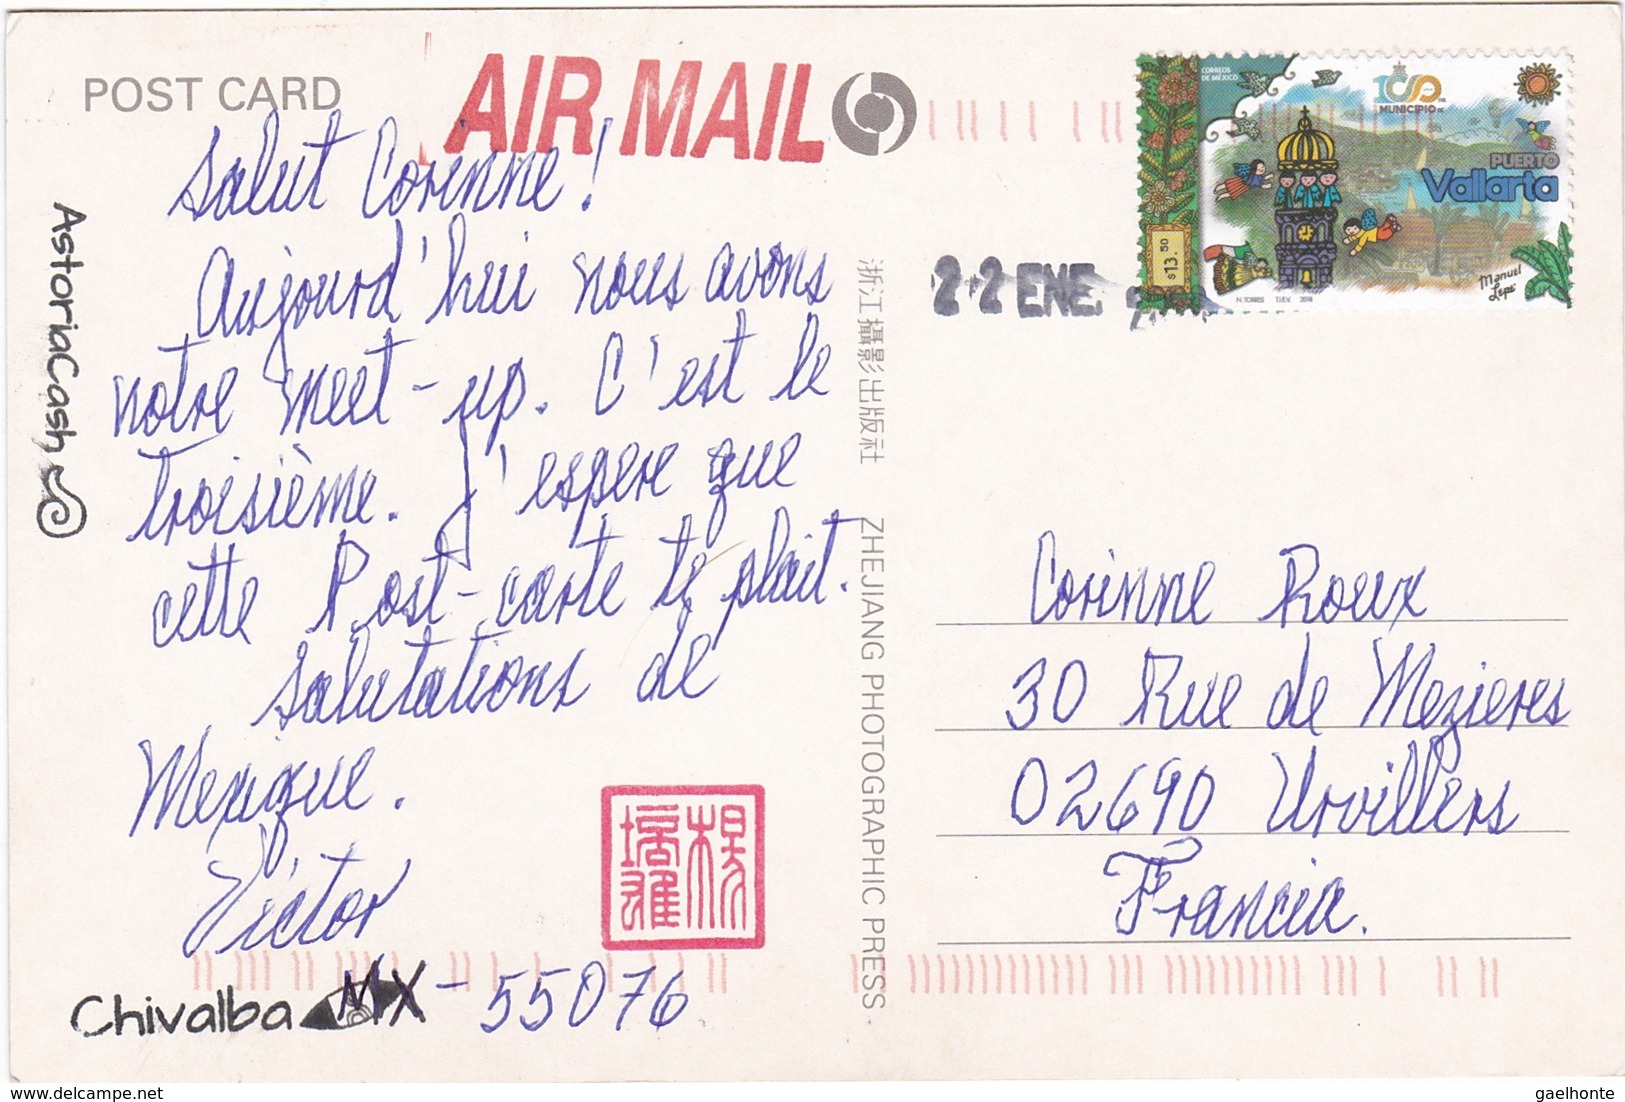 POST CARD
AIR MAIL
Salut Corinne!
Aujourd'hui nous avons
notre meet-up. C'est le
troisième. J'espere que
cette Post-carte te plait.
Salutations de
Mexique.
Victor
MX-55076
Chivalba
AstoriaCash
浙江攝影出版社
ZHEJIANG PHOTOGRAPHIC PRESS
22 ENE
CORREOS
DE MÉXICO
100
MUNICIPIO DE
PUERTO
Vallarta
$13.50
N. TORRES T.I.E.V. 2018
Manuel
Lepe
Corinne Roux
30 Rue de Mezieres
02690 Urvillers
Francia.
gaelhonte